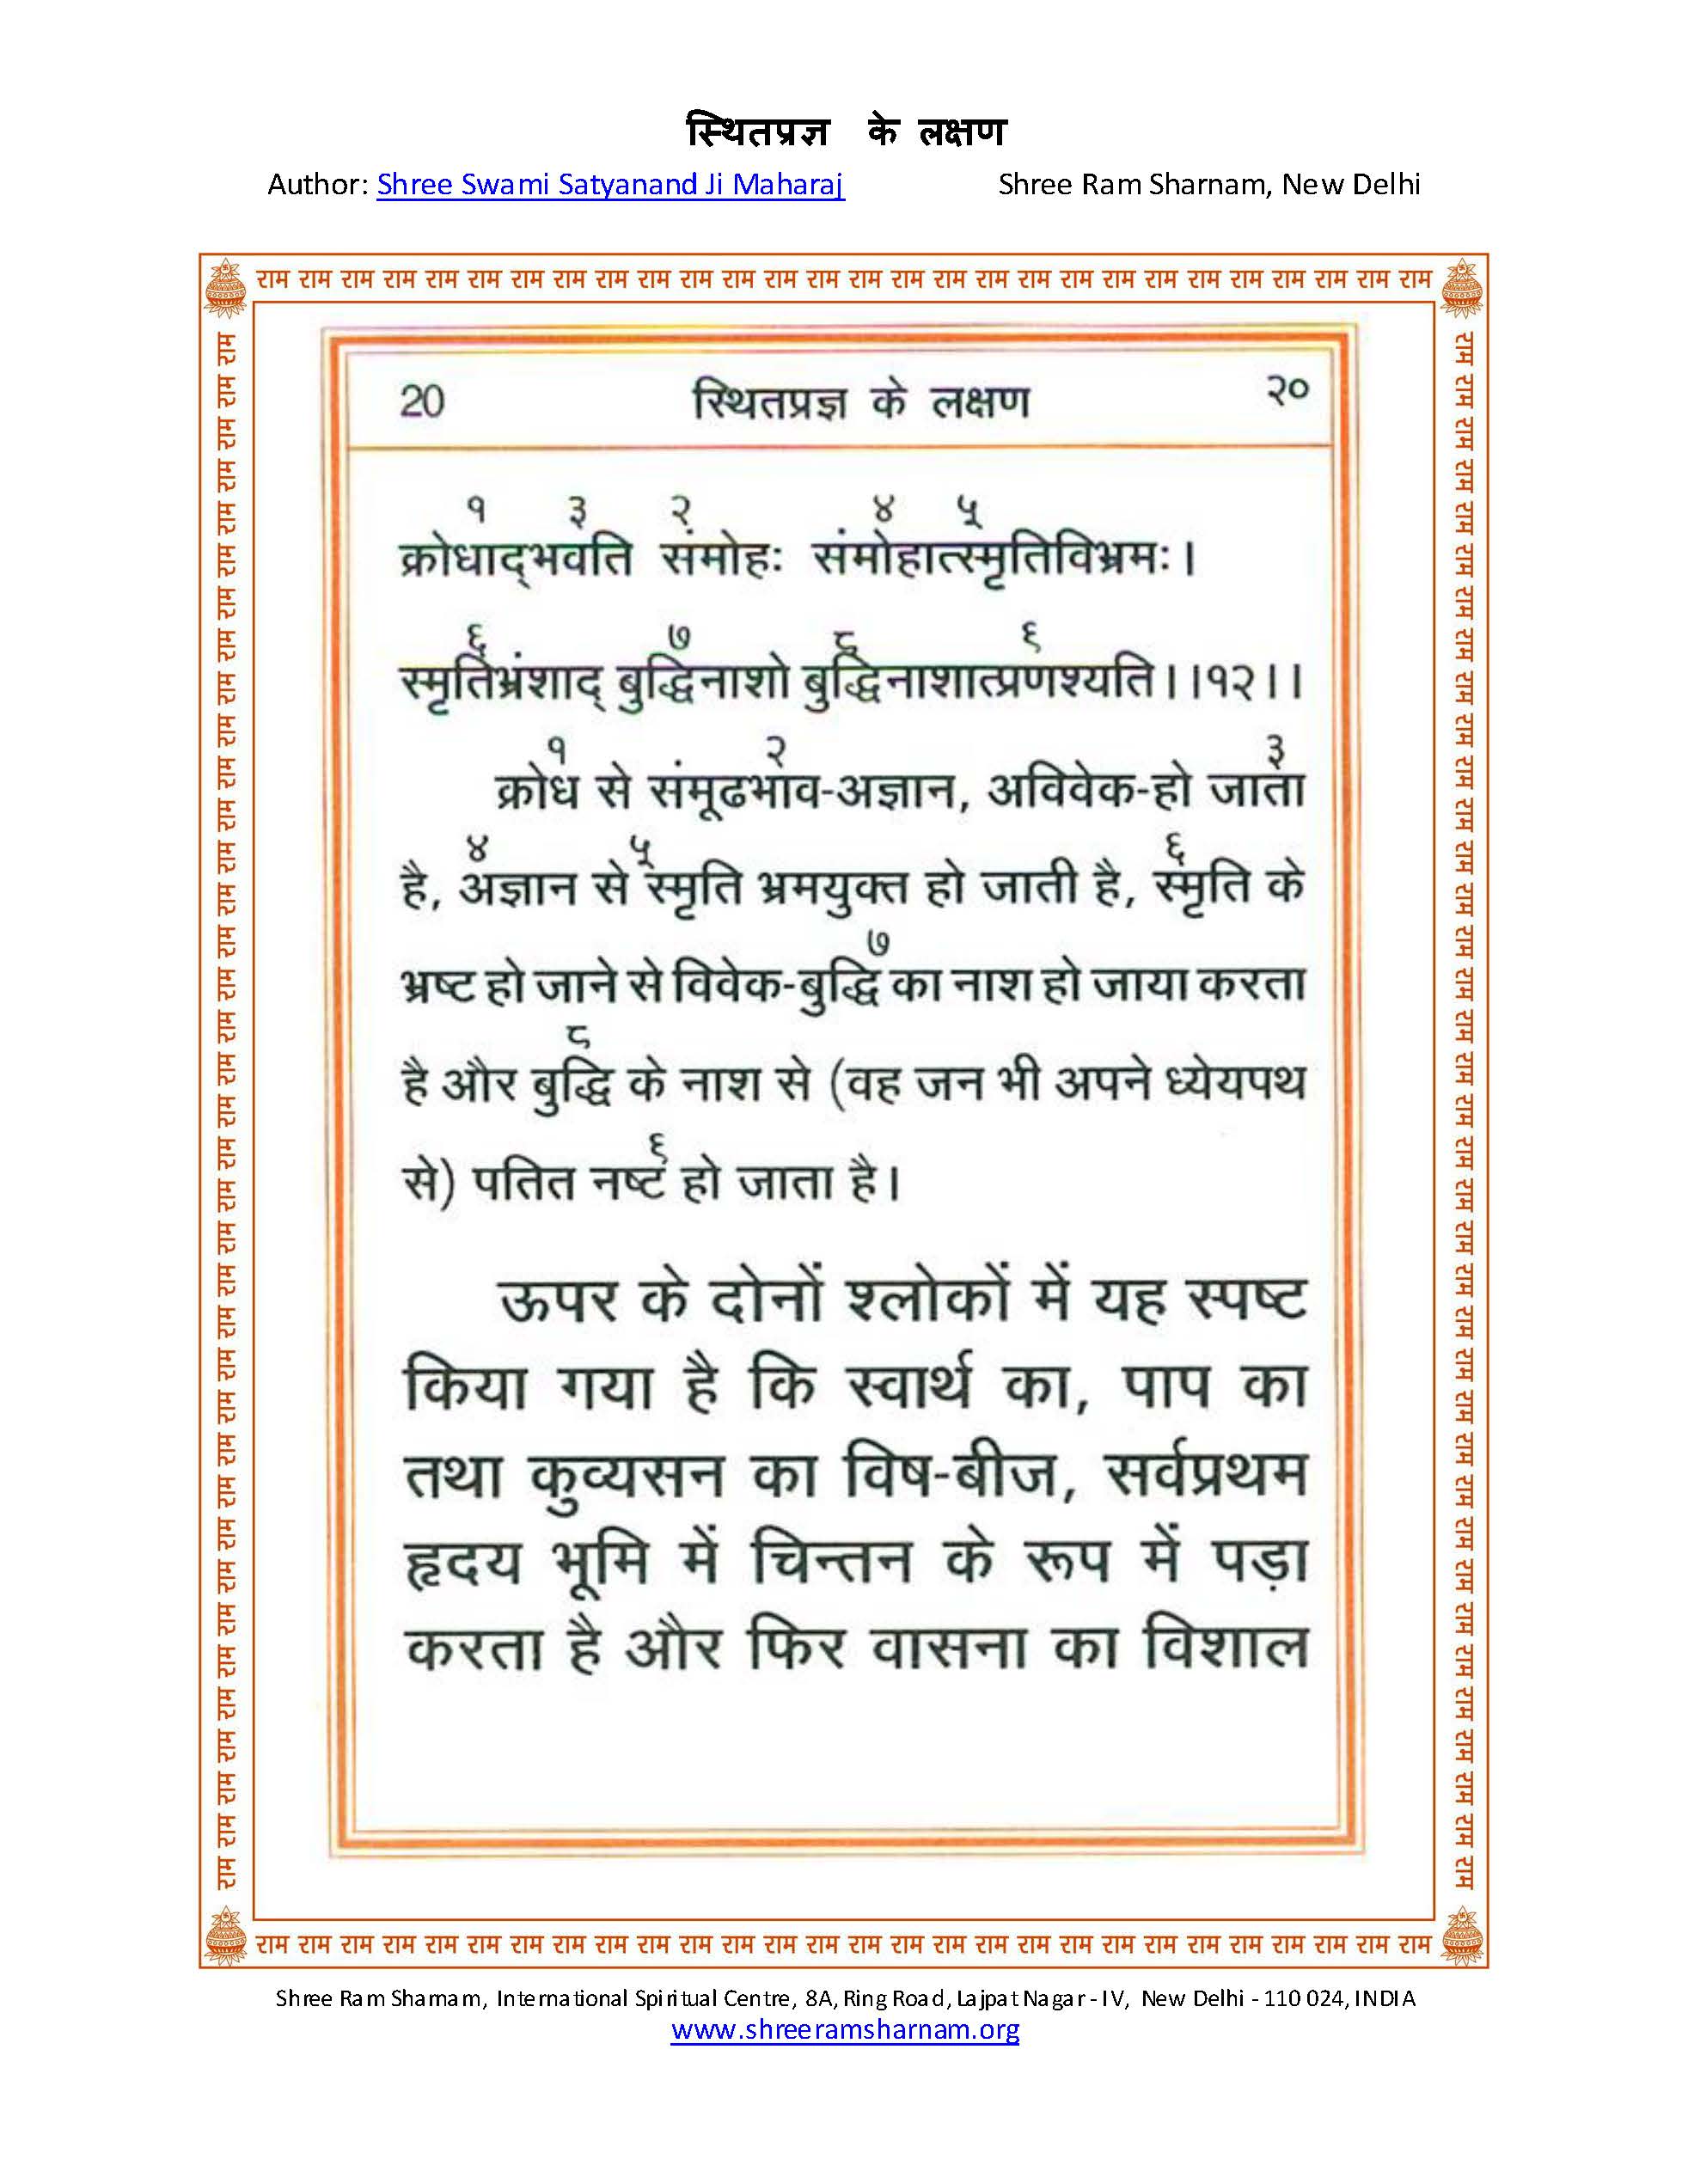 स्थितप्रज्ञ के लक्षण
Author: Shree Swami Satyanand Ji Maharaj Shree Ram Sharnam, New Delhi
राम राम राम राम राम राम राम राम राम राम राम राम राम राम राम राम राम राम राम राम राम राम राम राम राम राम राम राम
20 स्थितप्रज्ञ के लक्षण २०
१ ३ २ ४ ५
क्रोधाद्भवति संमोहः संमोहात्स्मृतिविभ्रमः।
६ ७ ८ ९
स्मृतिभ्रंशाद् बुद्धिनाशो बुद्धिनाशात्प्रणश्यति।।१२।।
१ २ ३
क्रोध से संमूढभाव-अज्ञान, अविवेक-हो जाता
४ ५ ६
है, अज्ञान से स्मृति भ्रमयुक्त हो जाती है, स्मृति के
७
भ्रष्ट हो जाने से विवेक-बुद्धि का नाश हो जाया करता
८
है और बुद्धि के नाश से (वह जन भी अपने ध्येयपथ
९
से) पतित नष्ट हो जाता है।
ऊपर के दोनों श्लोकों में यह स्पष्ट
किया गया है कि स्वार्थ का, पाप का
तथा कुव्यसन का विष-बीज, सर्वप्रथम
हृदय भूमि में चिन्तन के रूप में पड़ा
करता है और फिर वासना का विशाल
राम राम राम राम राम राम राम राम राम राम राम राम राम राम राम राम राम राम राम राम राम राम राम राम राम राम राम राम
Shree Ram Sharnam, International Spiritual Centre, 8A, Ring Road, Lajpat Nagar - IV, New Delhi - 110 024, INDIA
www.shreeramsharnam.org